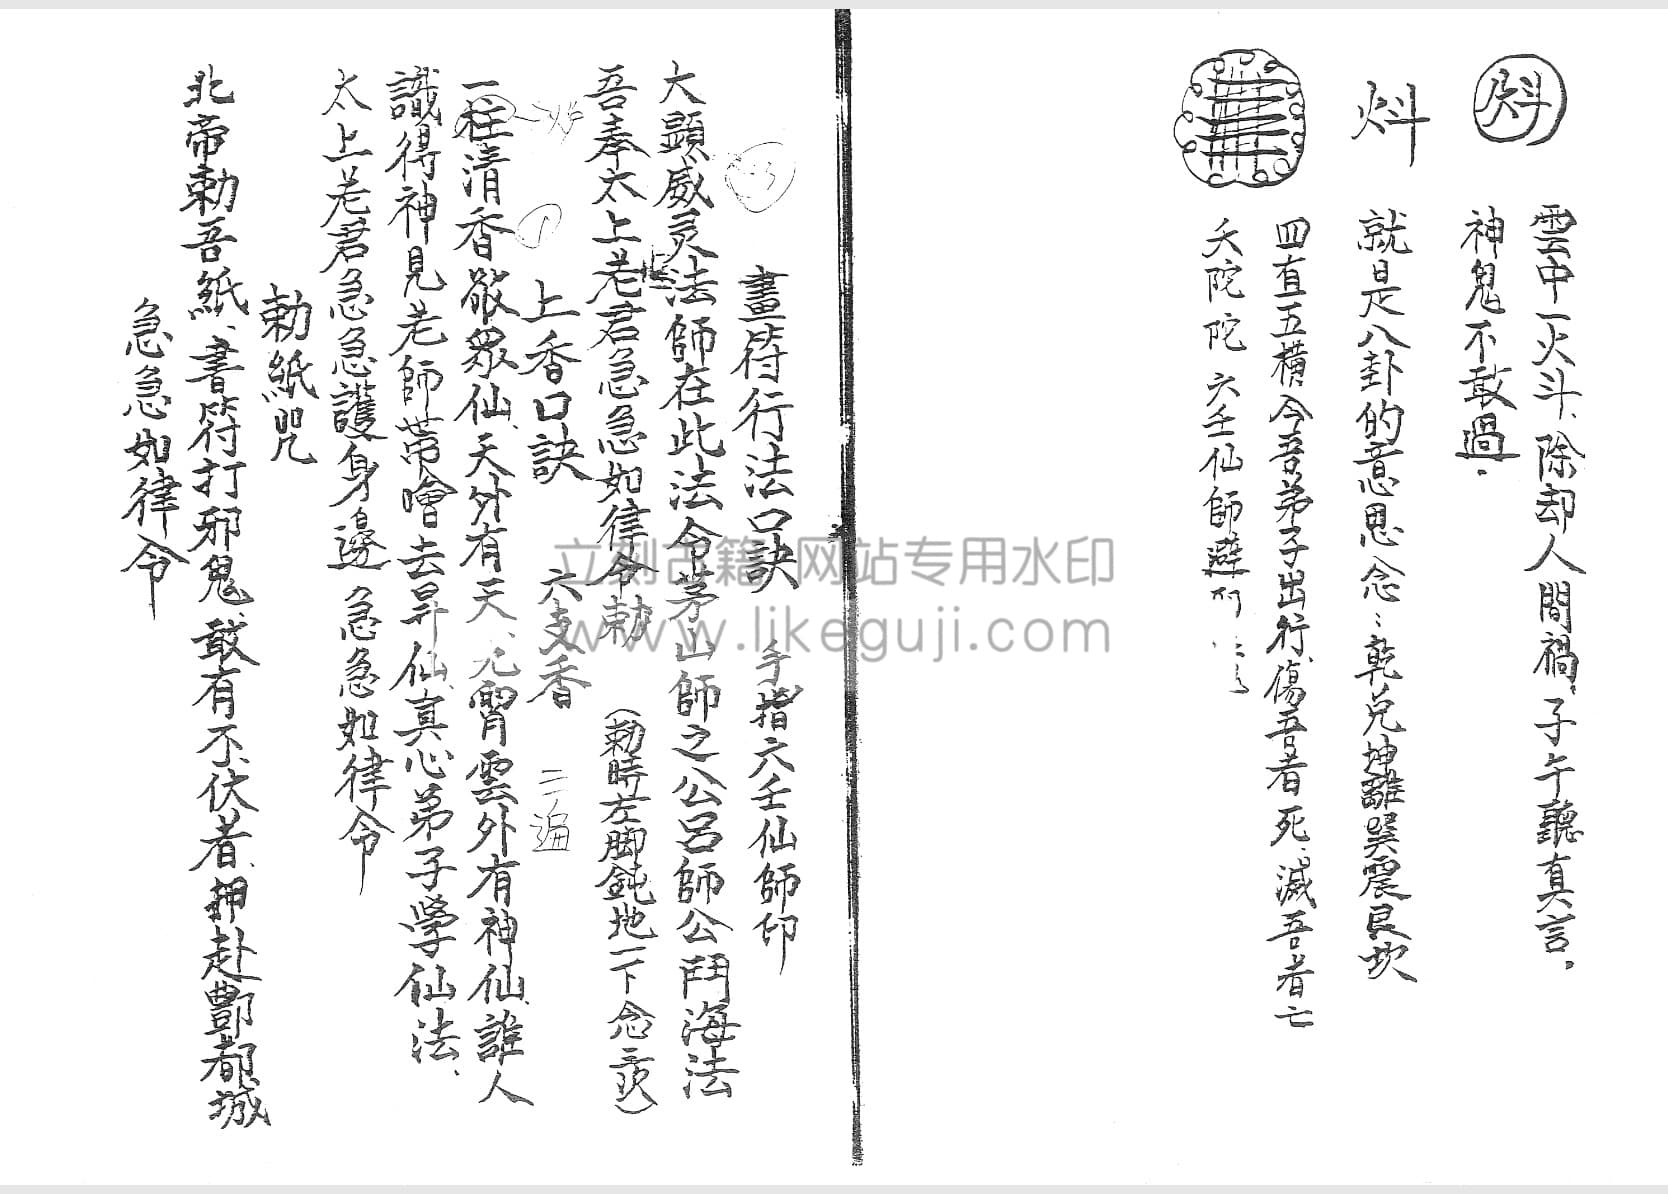 雲中一火斗、除却人間禍、子午聽真言。
神鬼不敢過。
就是八卦的意思念：乾兌坤離巽震艮坎
四直五横今吾弟子出行、傷吾者死、滅吾者亡
夭陀陀六壬仙師避
畫符行法口訣 手指六壬仙師印
大顕威灵法師在此法令茅山師之公呂師公鬥海法
吾奉太上老君急急如律令勅 （勅時左脚鈍地一下念三次）
上香口訣 六支香 三遍
一柱清香敬眾仙、天外有天、元霄雲外有神仙、誰人
識得神見老師帶噲去昇仙、真心弟子學仙法、
太上老君急急護身邊 急急如律令
勅紙咒
北帝勅吾紙、書符打邪鬼、敢有不伏者、押赴酆都城
急急如律令
立刻古籍 网站专用水印
www.likeguji.com